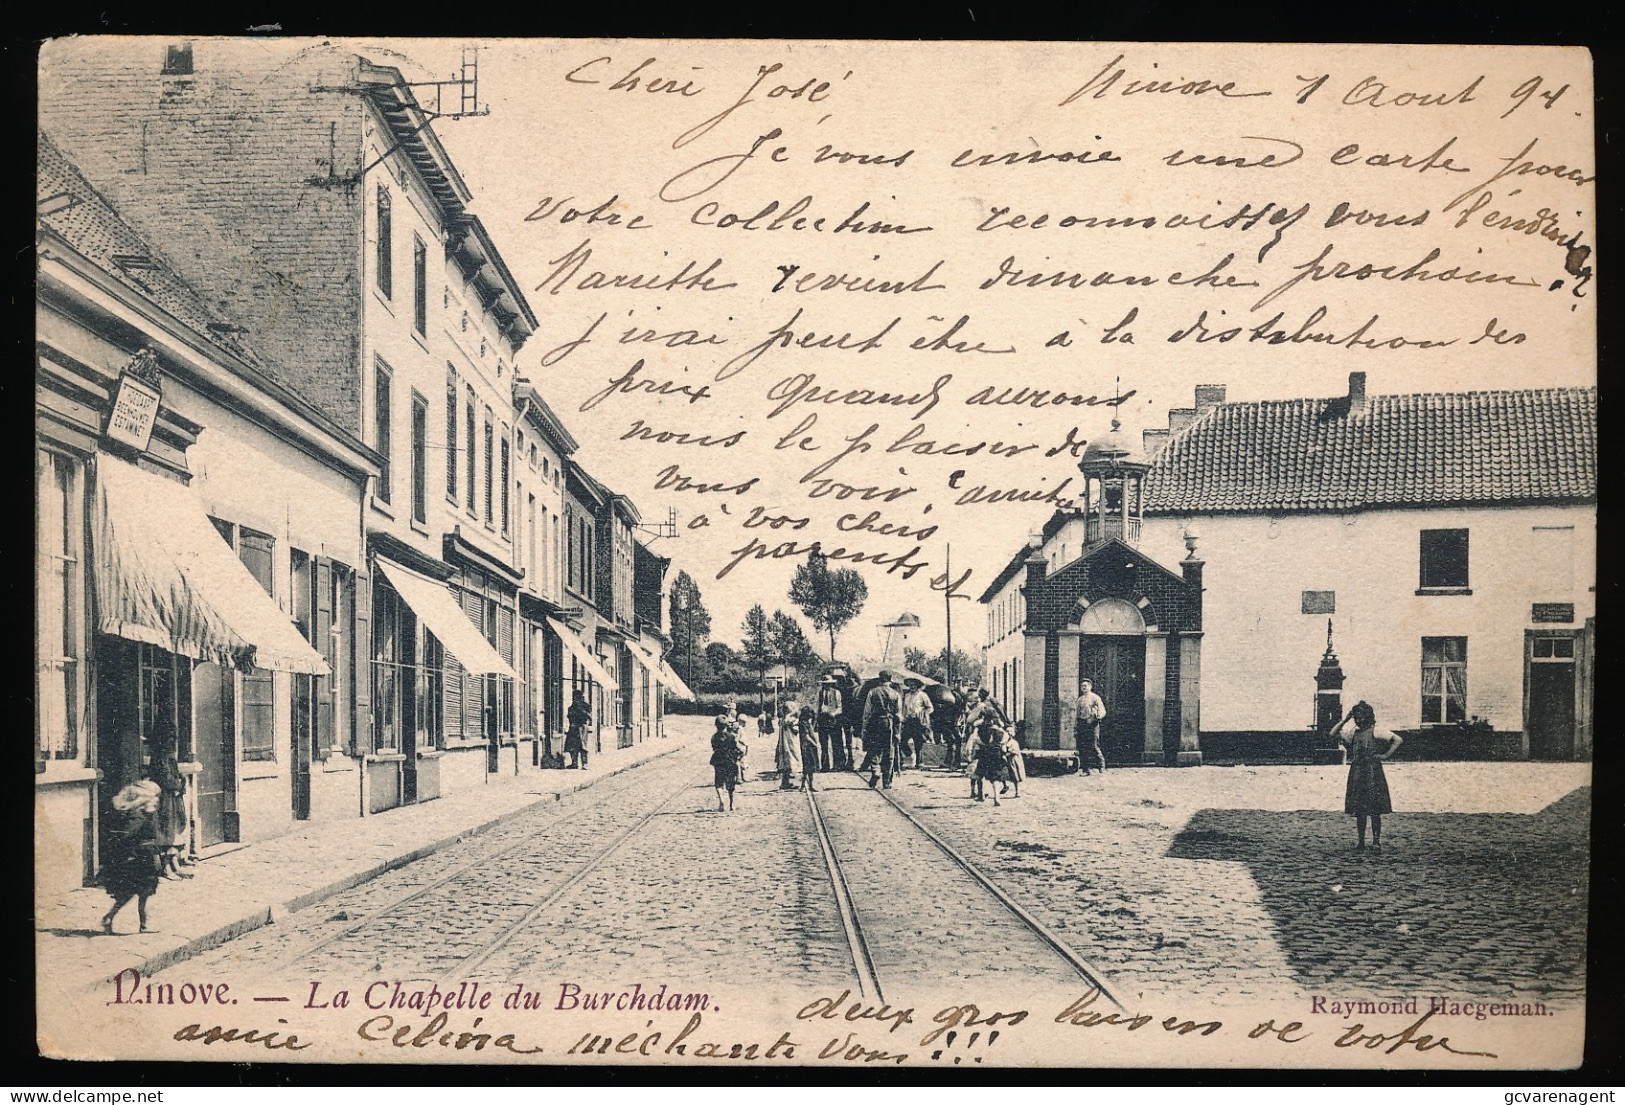 Cheri José Ninove 1 Aout 94.
Je vous envoie une carte pour
votre collection reconnaissez vous l'éndroit?
Mariette revient dimanche prochain.
j'irai peut être à la distribution des
prix Quand aurons
nous le plaisir de
vous voir,
à vos chers
parents et
HUIZAERT
BEENHOUWER
ESTAMINET
Ninove. — La Chapelle du Burchdam.
Raymond Haegeman.
deux gros baisers de votre
amie Celina méchante vous!!!
gcvarenagent